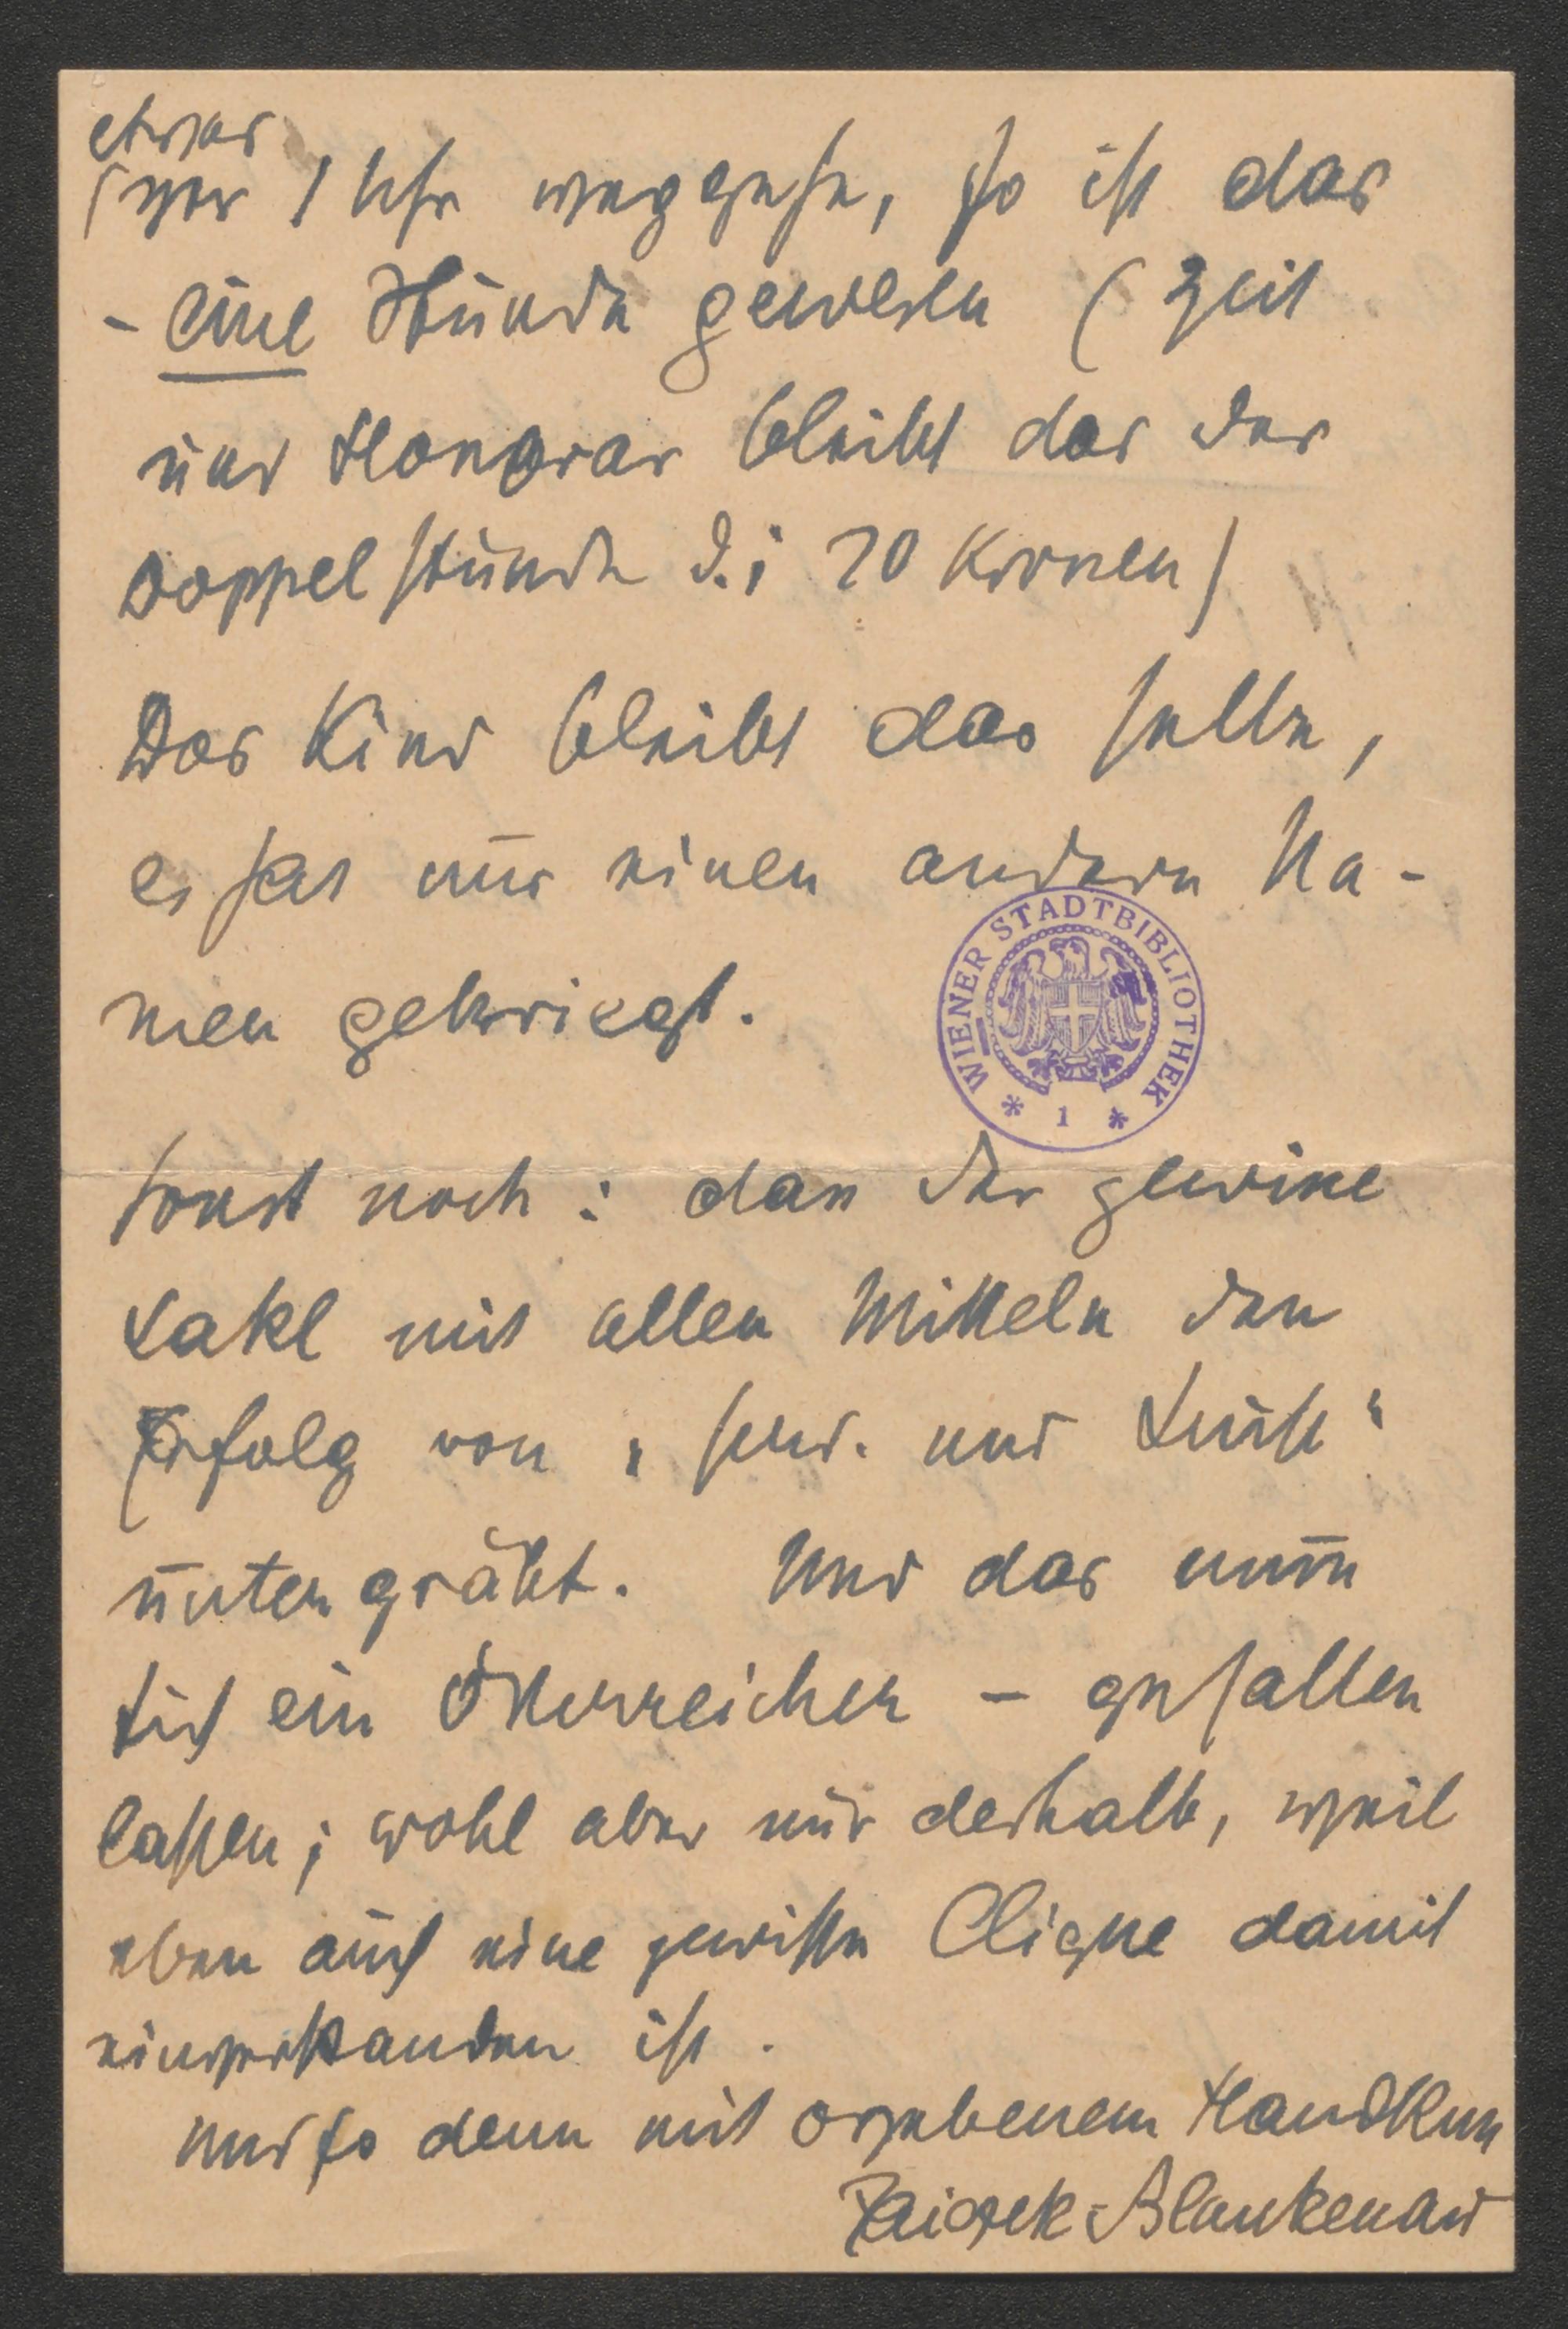 etwas
vor 1 Uhr weggehe, so ist das
- eine Stunde gewesen (Zeit
und Honorar bleibt das der
Doppelstunde d.i 20 Kronen)
Das Kind bleibt das selbe,
es hat nur einen andern Na-
men gekriegt.
WIENER STADTBIBLIOTHEK
* 1 *
sonst noch: dass der gewisse
Lakl mit allen Mitteln den
Erfolg von „ und "
untergräbt. Und das muss
sich ein Österreicher - gefallen
lassen; wohl aber nur deshalb, weil
eben auch eine gewisse Clique damit
einverstanden ist.
Und so denn mit ergebenem Handkuss
Zaiczek-Blankenau